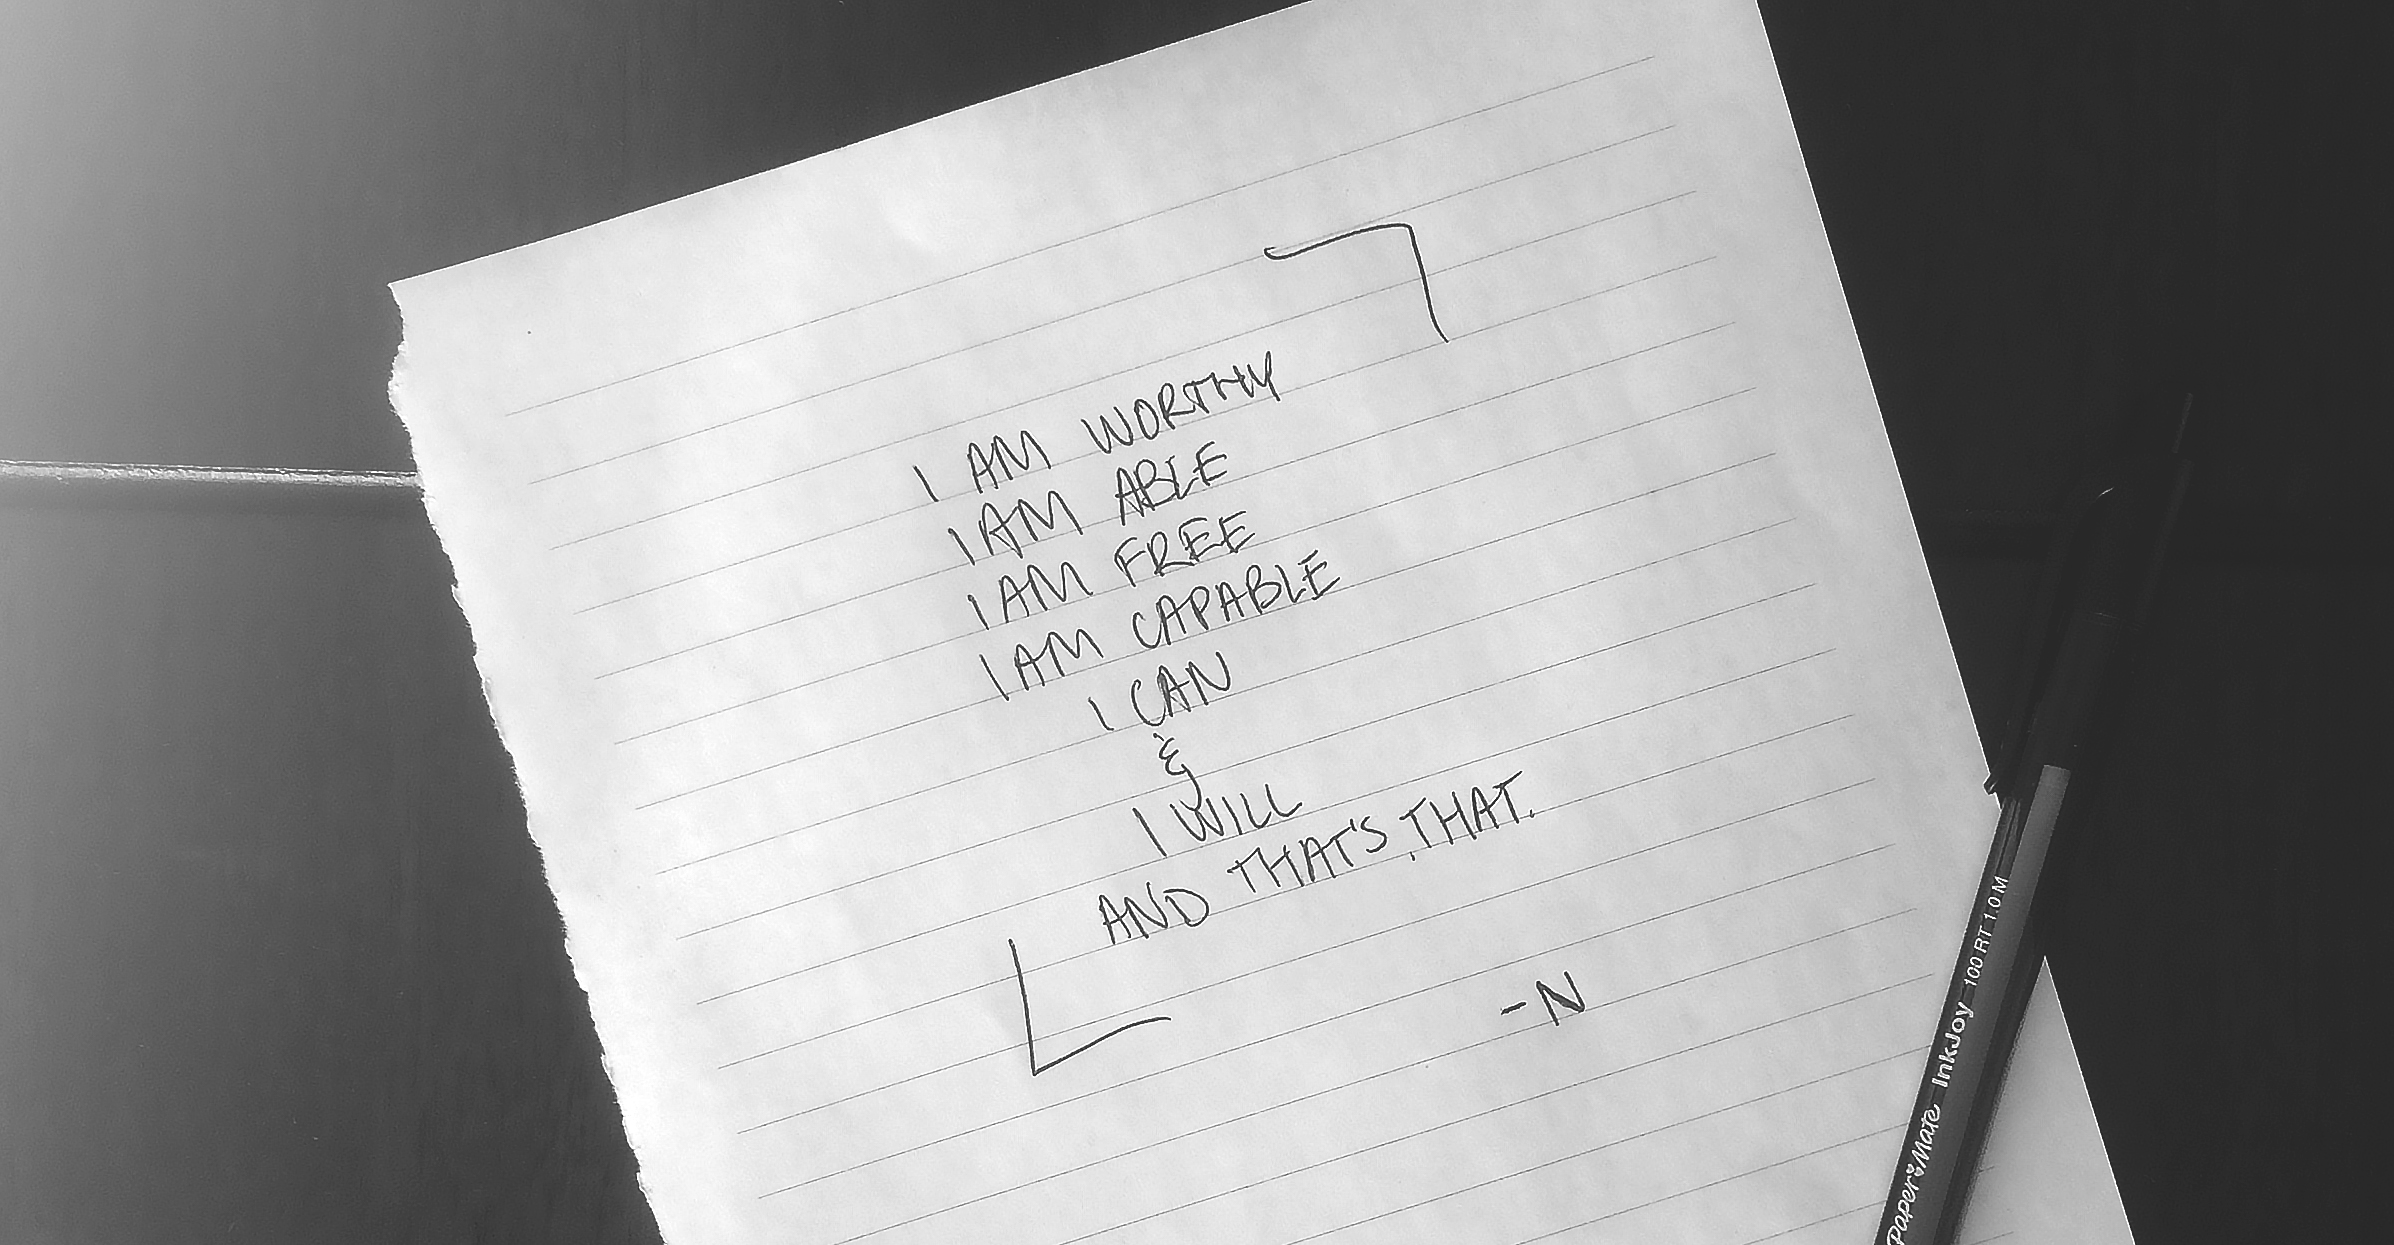 I AM WORTHY
I AM ABLE
I AM FREE
I AM CAPABLE
I CAN
&
I WILL
AND THAT'S THAT.
-N
Paper Mate InkJoy 100 RT 1.0 M